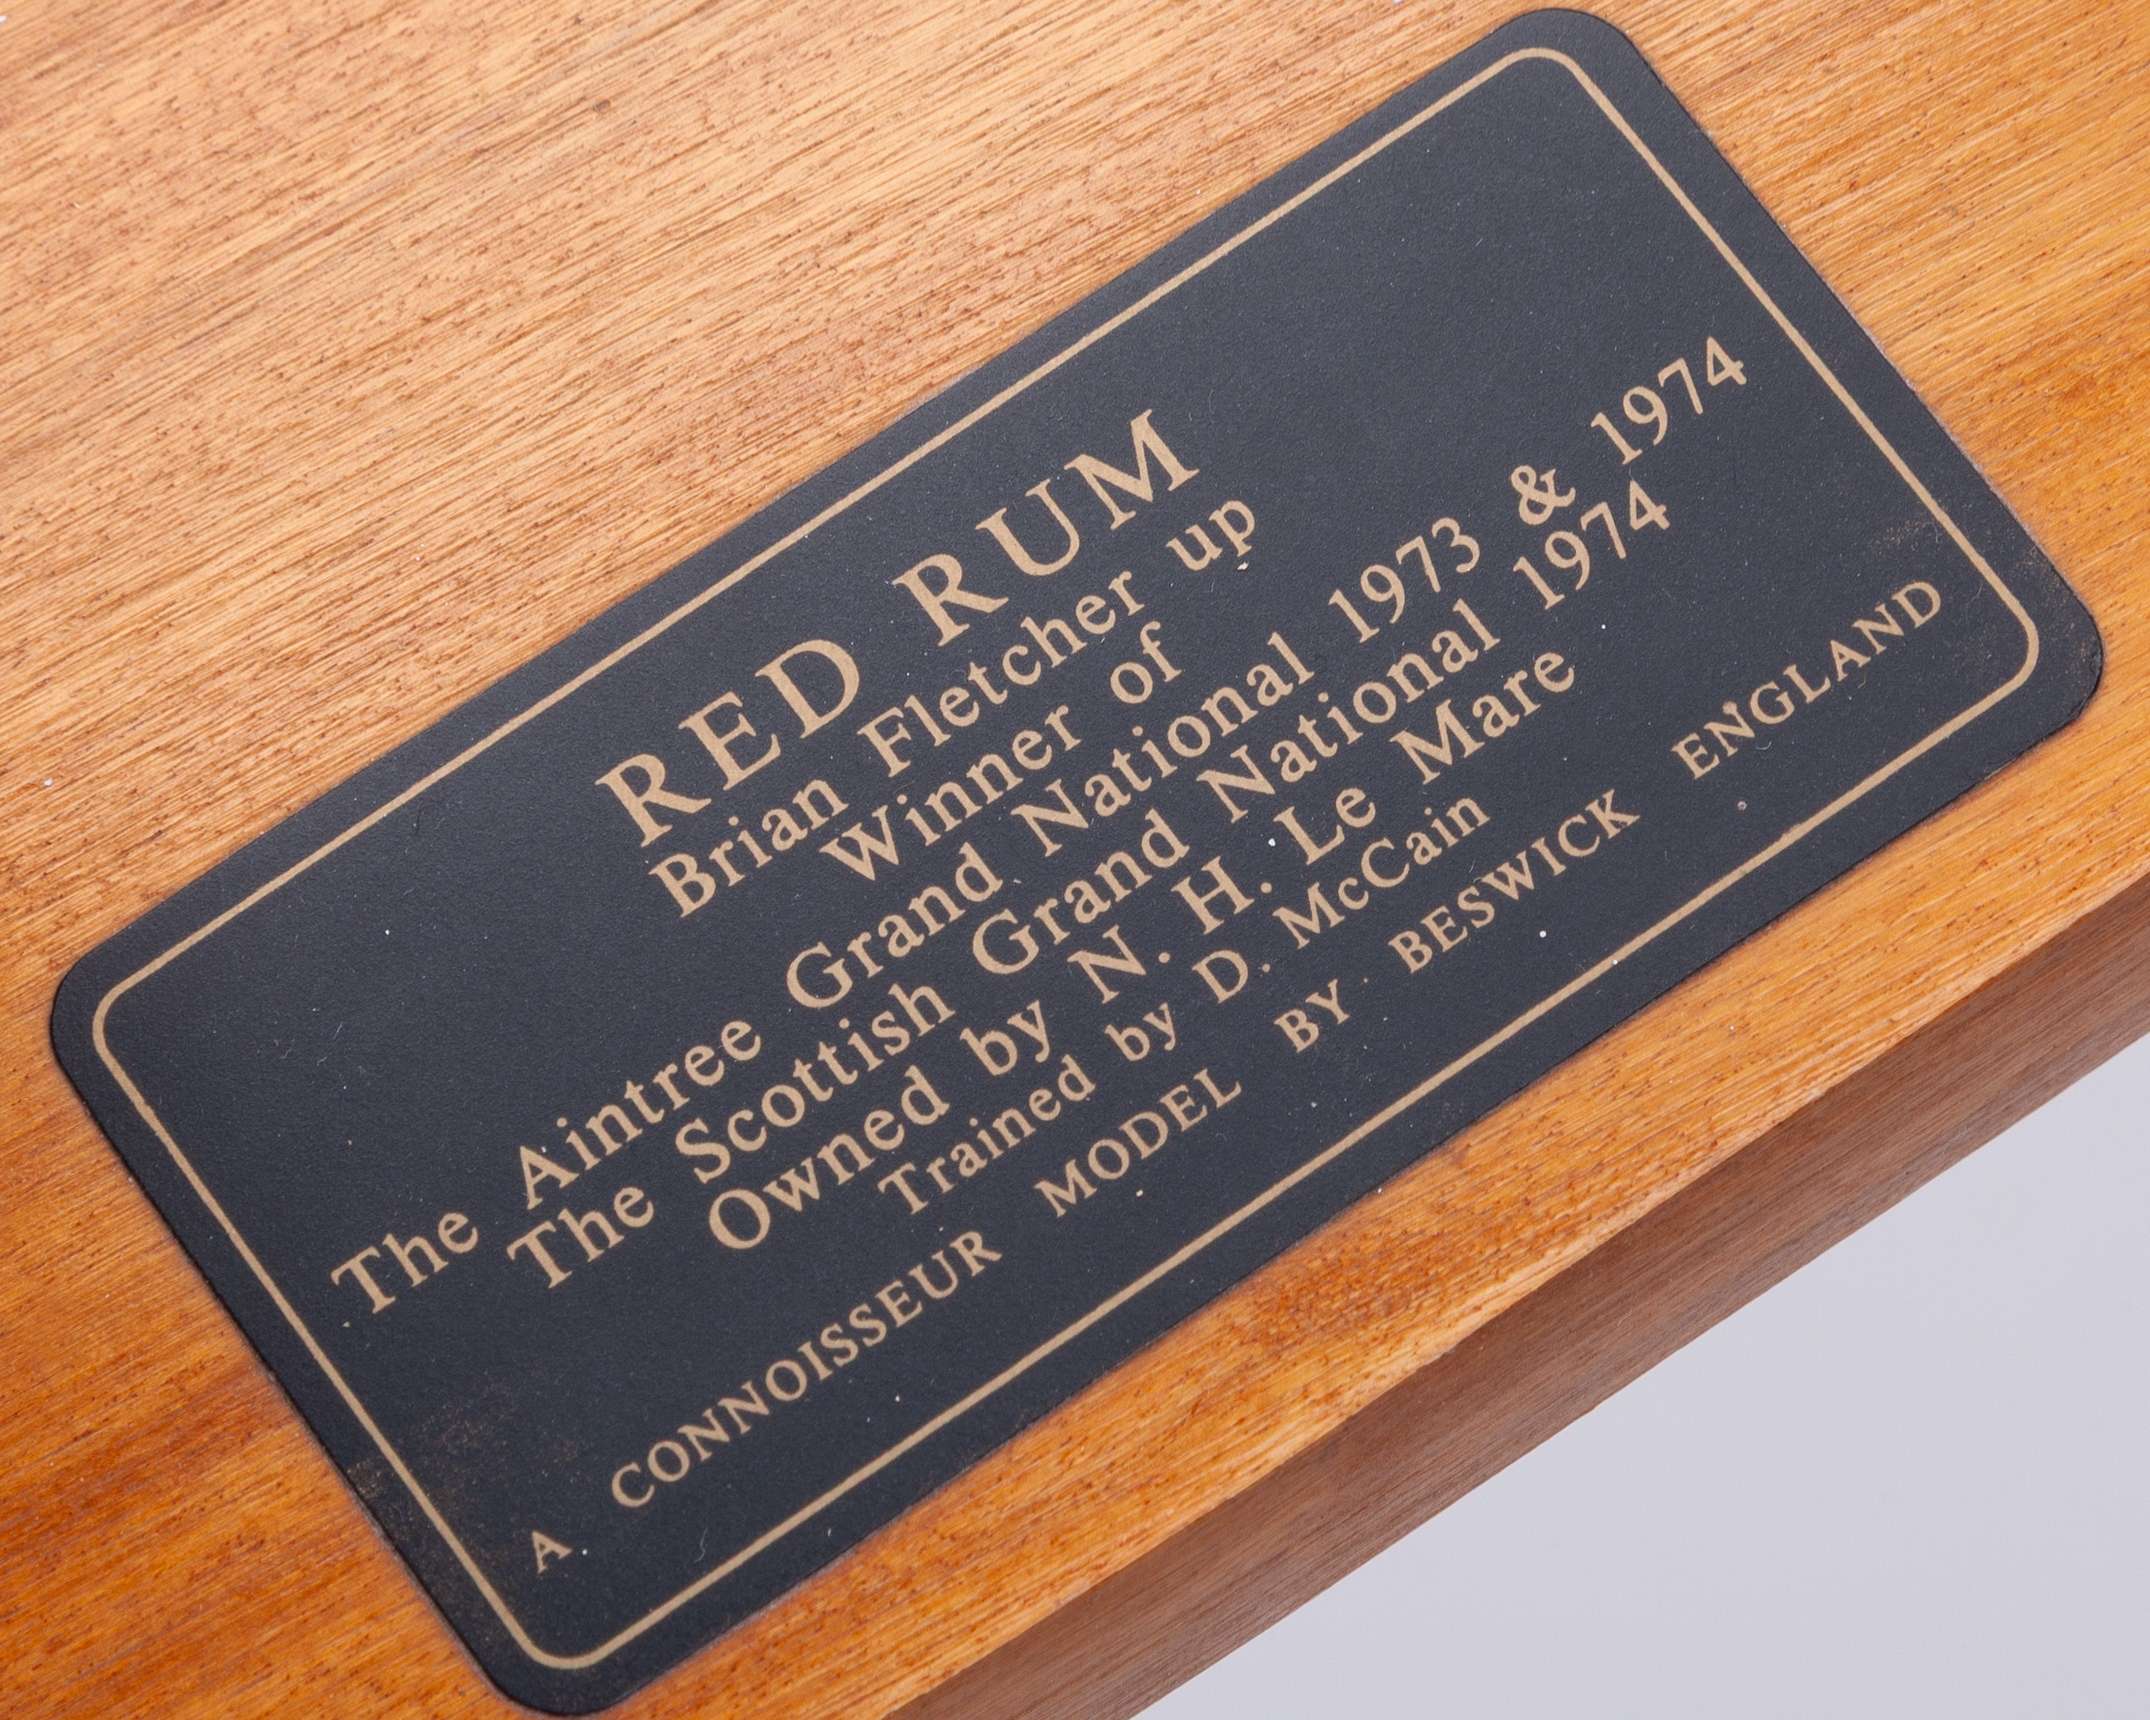 RED RUM
Brian Fletcher up
Winner of
The Aintree Grand National 1973 & 1974
The Scottish Grand National 1974
Owned by N. H. Le Mare
Trained by D. McCain
A CONNOISSEUR MODEL BY BESWICK ENGLAND